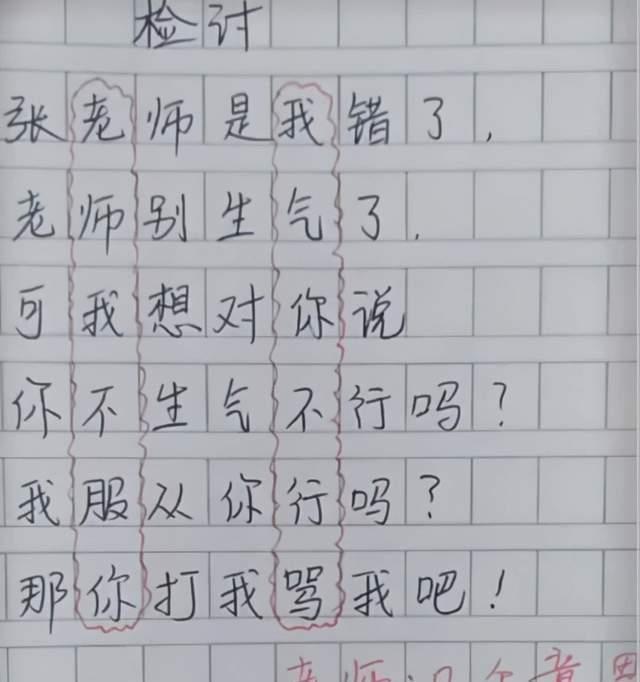 检讨
张老师是我错了，
老师别生气了．
可我想对你说
你不生气不行吗？
我服从你行吗？
那你打我骂我吧！